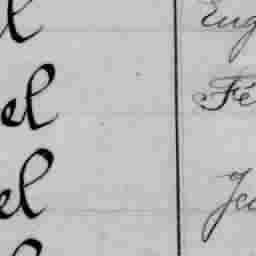 l Eug
el Fé
el Jea